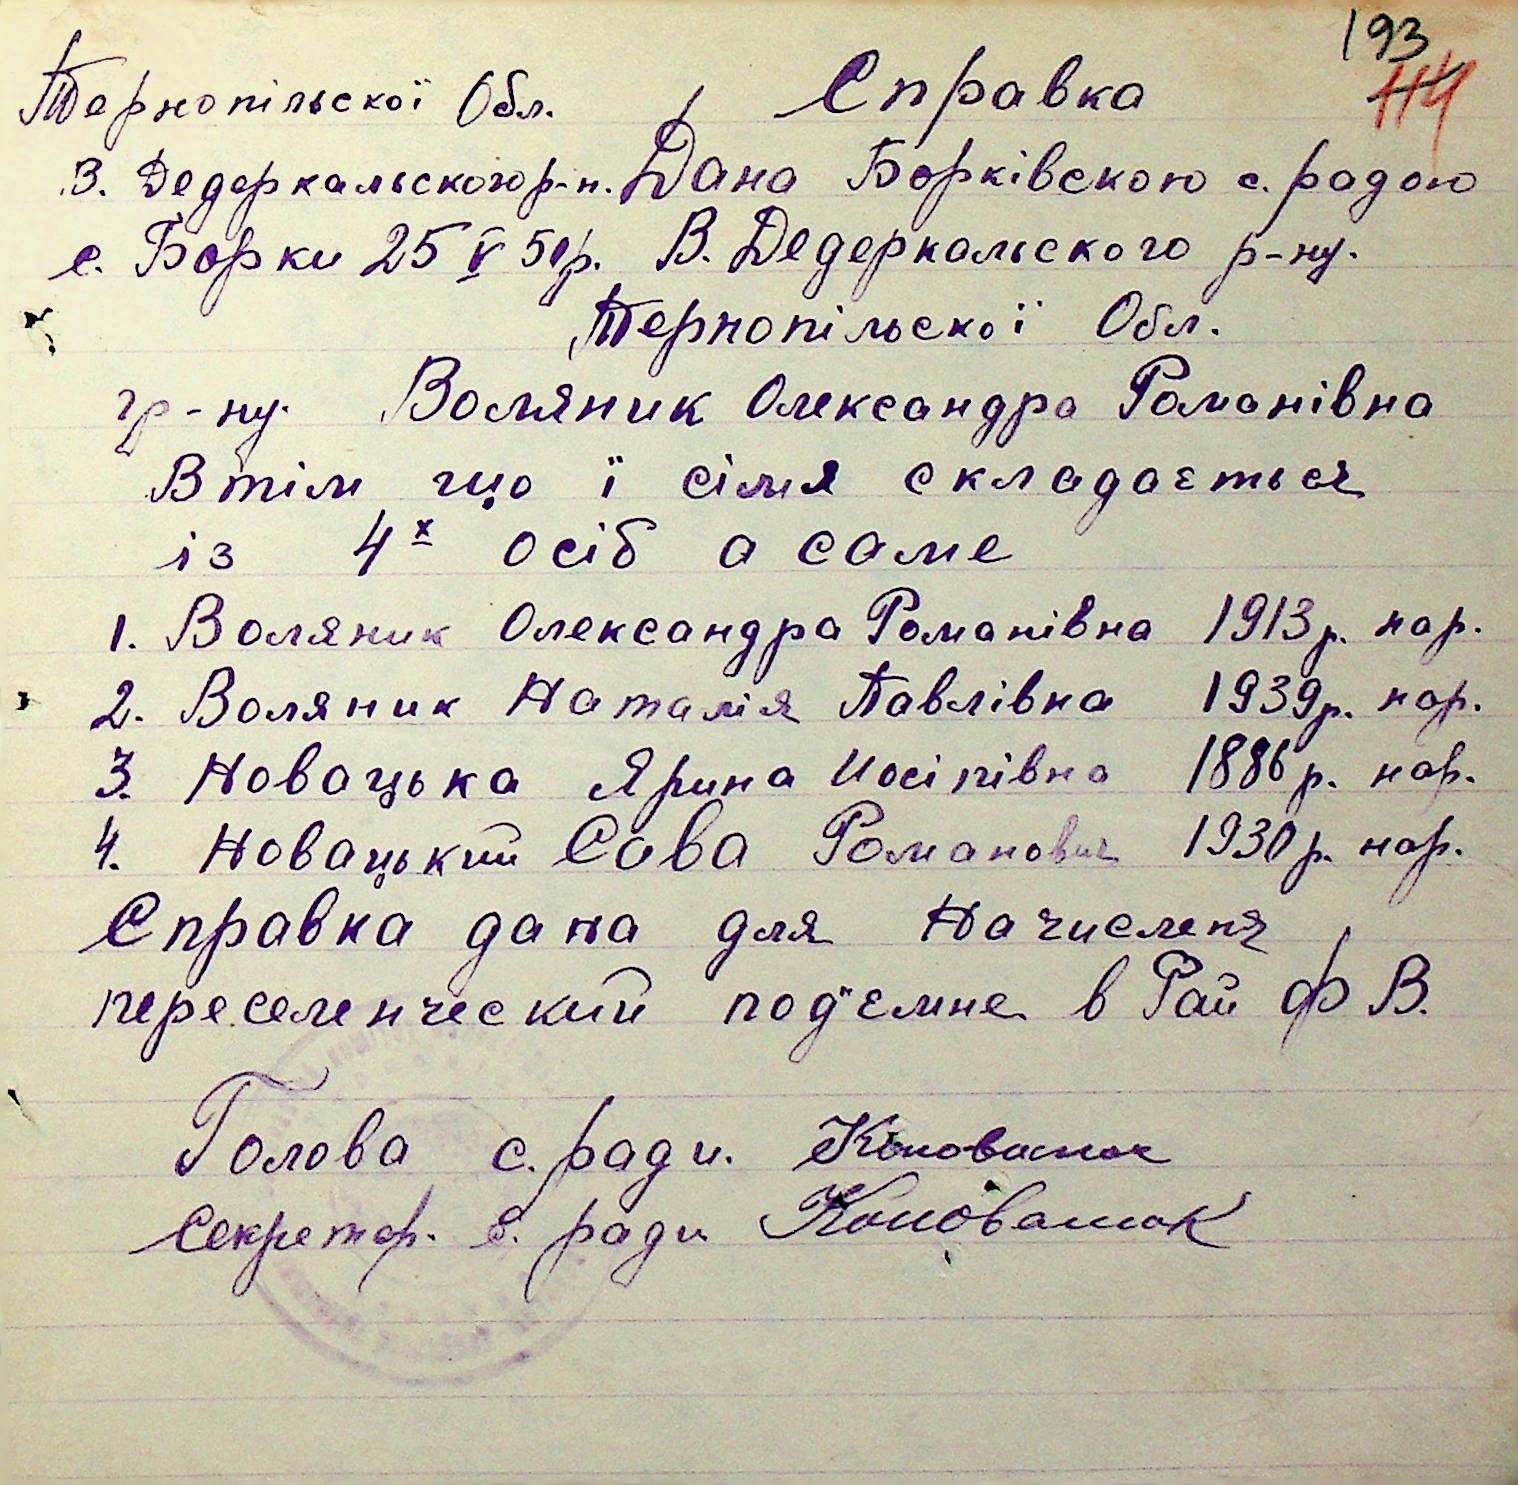 193
114
Тернопільскої Обл. Справка
В. Дедеркальского р-н. Дана Борківскою с. радою
с. Борки 25 V 50р. В. Дедеркальского р-ну.
Тернопільскої Обл.
гр-ну. Воляник Олександра Романівна
В тім що ї сімя складається
із 4х осіб а саме
1. Воляник Олександра Романівна 1913р. нар.
2. Воляник Наталія Павлівна 1939р. нар.
3. Новацька Ярина Иосіпівна 1886р. нар.
4. Новацький Сава Романович 1930р. нар.
Справка дана для Начисленя
переселенческий под'ємне в Рай Ф В.
Голова с. ради.
Секретар. с. ради